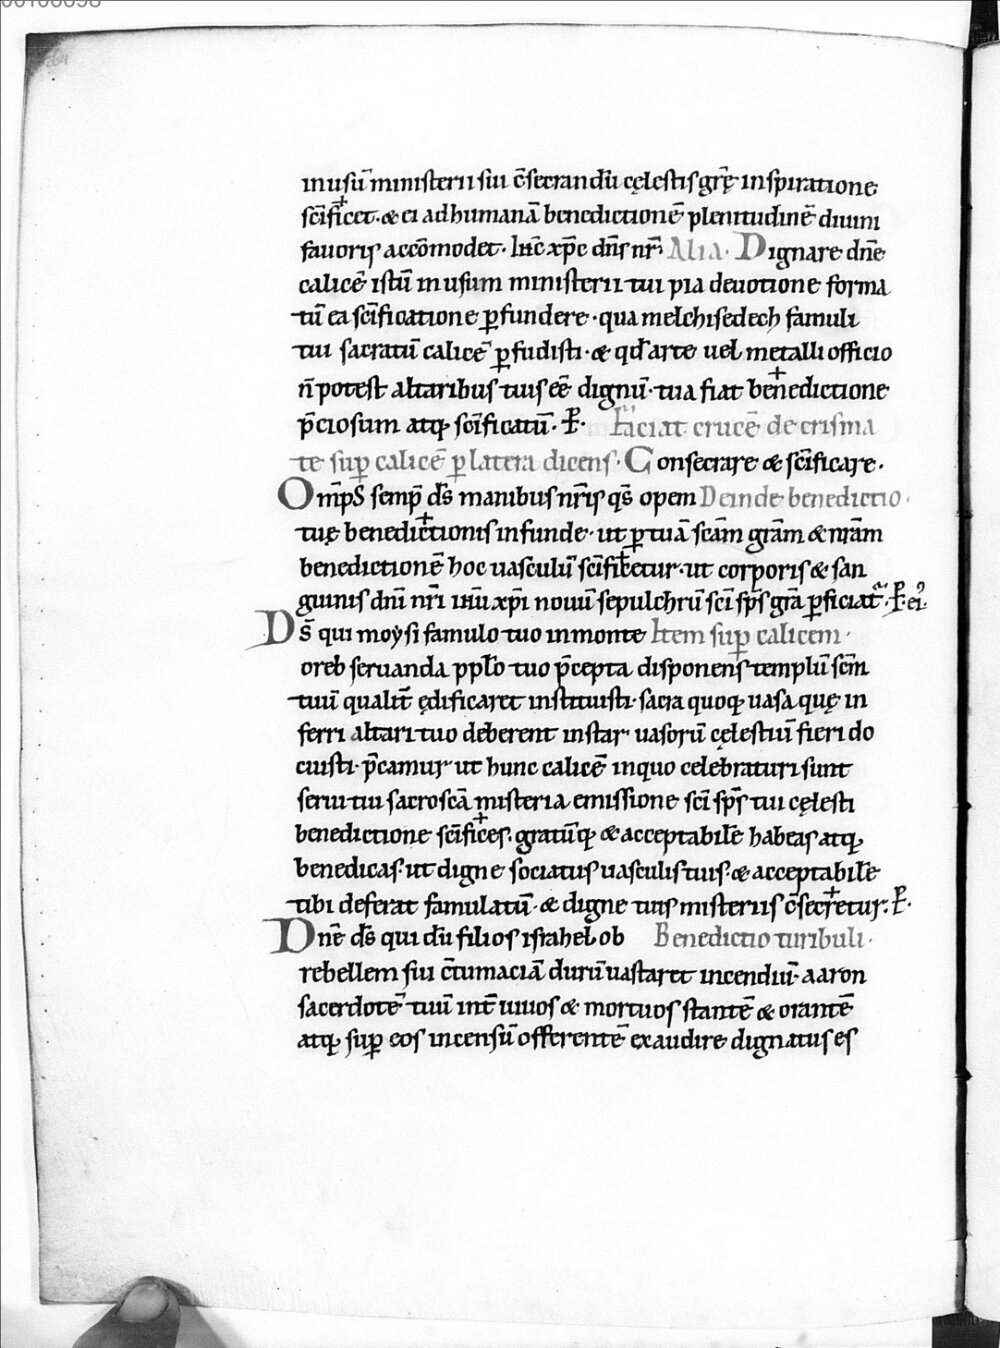 in usū ministerii sui c̄secrandū cęlestis gr̄ę inspiratione
sc̄ificet · & ei ad humanā benedictionē plenitudinē diuini
fauoris accōmodet · hūc xp̄c dn̄s nr̄ · Alia · Dignare dn̄e
calicē istū in usum ministerii tui pia deuotione forma
tū ea sc̄ificatione ꝑfundere · qua melchisedech famuli
tui sacratū calicē ꝑfudisti · & qd̄ arte uel metalli officio
n̄ potest altaribus tuis eē dignū · tua fiat benedictione
p̄ciosum atq; sc̄ificatū · P̄ · Faciat crucē de crisma
te sup̱ calicē ꝑ latera dicens · Consecrare & sc̄ificare ·
Om̄ps semp̱ ds̄ manibus nr̄is qs̄ opem Deinde benedictio ·
tuę benedictionis infunde · ut ꝑ tuā scām grām & nr̄am
benedictionē hoc uasculū sc̄ificetur · ut corporis & san
guinis dn̄i nr̄i ihū xp̄i nouū sepulchrū sc̄i sp̄s grā ꝑficiat᷑ · P̄ · ei᷒ ·
Ds̄ qui moẏsi famulo tuo in monte Item sup̱ calicem ·
oreb seruanda pplo tuo p̄cepta disponens templū sc̄m
tuū qualit̄ ędificaret instituisti · sacra quoq; uasa quę in
ferri altari tuo deberent instar uasorū cęlestiū fieri do
cuisti · p̄camur ut hunc calicē in quo celebraturi sunt
serui tui sacroscā misteria emissione sc̄i sp̄s tui cęlesti
benedictione sc̄ifices · gratūq; & acceptabile habeas atq;
benedicas · ut digne sociatus uasculis tuis · & acceptabile
tibi deferat famulatū · & digne tuis misteriis c̄secretur · P̄ ·
Dn̄e ds̄ qui dū filios israhel ob Benedictio turibuli ·
rebellem sui c̄tumaciā durū uastaret incendiū · aaron
sacerdotē tuū int̄ uiuos & mortuos stantē & orantē
atq; sup̱ eos incensū offerentē exaudire dignatus es